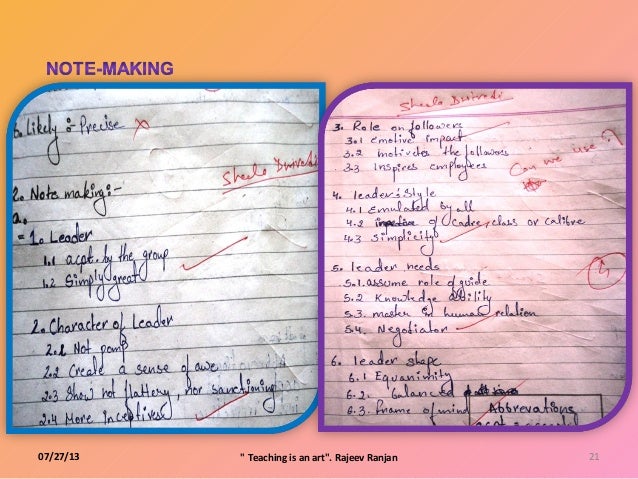 NOTE-MAKING
5. Likely :- Precise
Sheela Dwivedi
2. Note making:-
a.
= 1. Leader
1.1 acpt. by the group
1.2 Simply great
2. Character of Leader
2.1 Not pomp
2.2 Create a sense of awe
2.3 Show not flattery, nor sanctioning
2.4 More Inceptives
Sheela Dwivedi
3. Role on followers
3.1 emotive impact
3.2 motivates the followers
3.3 Inspires employees
Can we use ?
4. leader's Style
4.1 Emulated by all
4.2 of Cadre, class or calibre
4.3 Simplicity
5. leader needs
5.1. assume role of guide
5.2 Knowledge ability
5.3. master in human relation
5.4. Negotiator
6. leader shape
6.1 Equanimity
6.2. balanced
6.3. frame of mind
Abbrevations
07/27/13
" Teaching is an art". Rajeev Ranjan
21